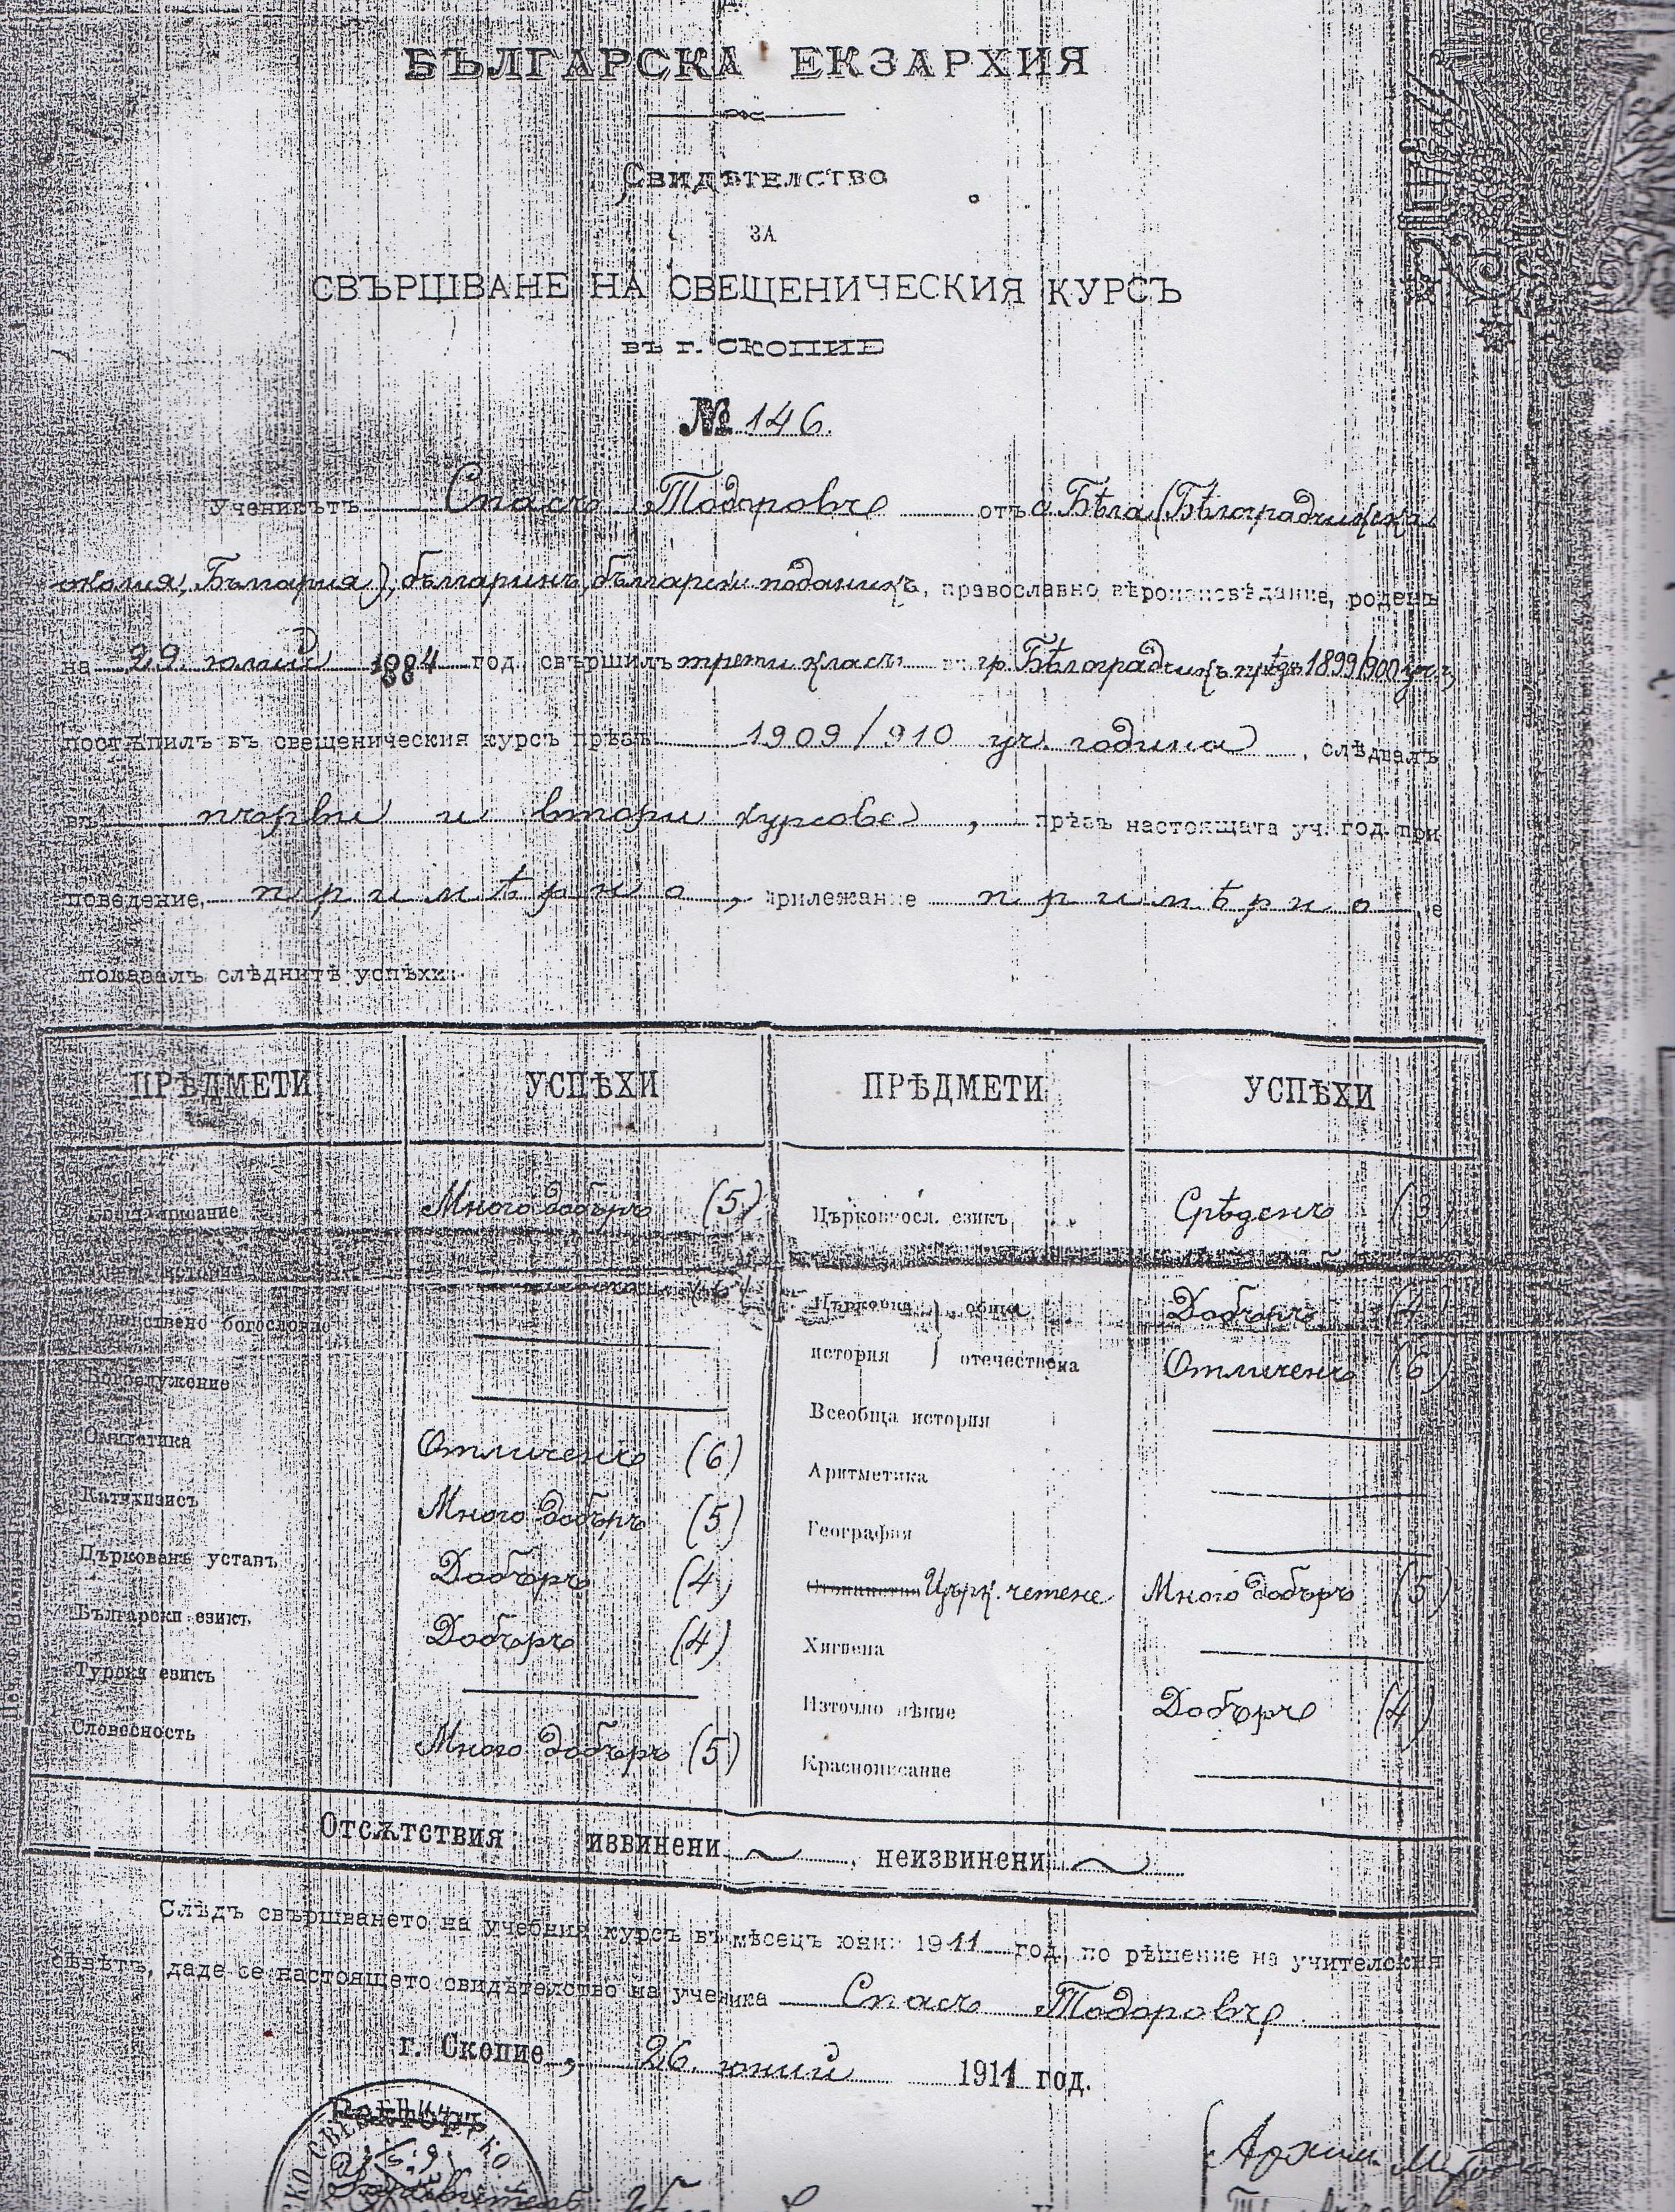 БЪЛГАРСКА ЕКЗАРХИЯ
Свидѣтелство
ЗА
СВЪРШВАНЕ НА СВЕЩЕНИЧЕСКИЯ КУРСЪ
въ г. СКОПИЕ
№ 146.
Ученикътъ Спасъ Тодоровъ отъ с. Бѣла (Бѣлоградчикска
околия, България), българинъ, български поданикъ, православно вѣроизповѣдание, роденъ
на 29. юлий 1884 год., свършилъ трети класъ въ гр. Бѣлоградчикъ прѣзъ 1899/900 уч. г.
постѫпилъ въ свещеническия курсъ прѣзъ 1909/910 уч. година, слѣдвалъ
въ първи и втори курсове, прѣзъ настоящата уч. год. при
поведение, примѣрно, прилежание примѣрно е
показалъ слѣднитѣ успѣхи:
ПРѢДМЕТИ УСПѢХИ ПРѢДМЕТИ УСПѢХИ
Много добъръ (5) Църковносл. езикъ Срѣденъ (3)
Нравствено богословие Църковна обща Добъръ (4)
Богослужение история отечествена Отличенъ (6)
Всеобща история
Омилетика Отличенъ (6) Аритметика
Катихизисъ Много добъръ (5) География
Църковенъ уставъ Добъръ (4) Църк. четене Много добъръ (5)
Български езикъ Добъръ (4) Хигиена
Турски езикъ Източно пѣние Добъръ (4)
Словесность Много добъръ (5) Краснописание
Отсѫтствия: извинени , неизвинени
Слѣдъ свършването на учебния курсъ въ мѣсецъ юни 1911 год., по рѣшение на учителския
съвѣтъ, даде се настоящето свидѣтелство на ученика Спасъ Тодоровъ
г. Скопие, 26. юний 1911 год.
Архим.